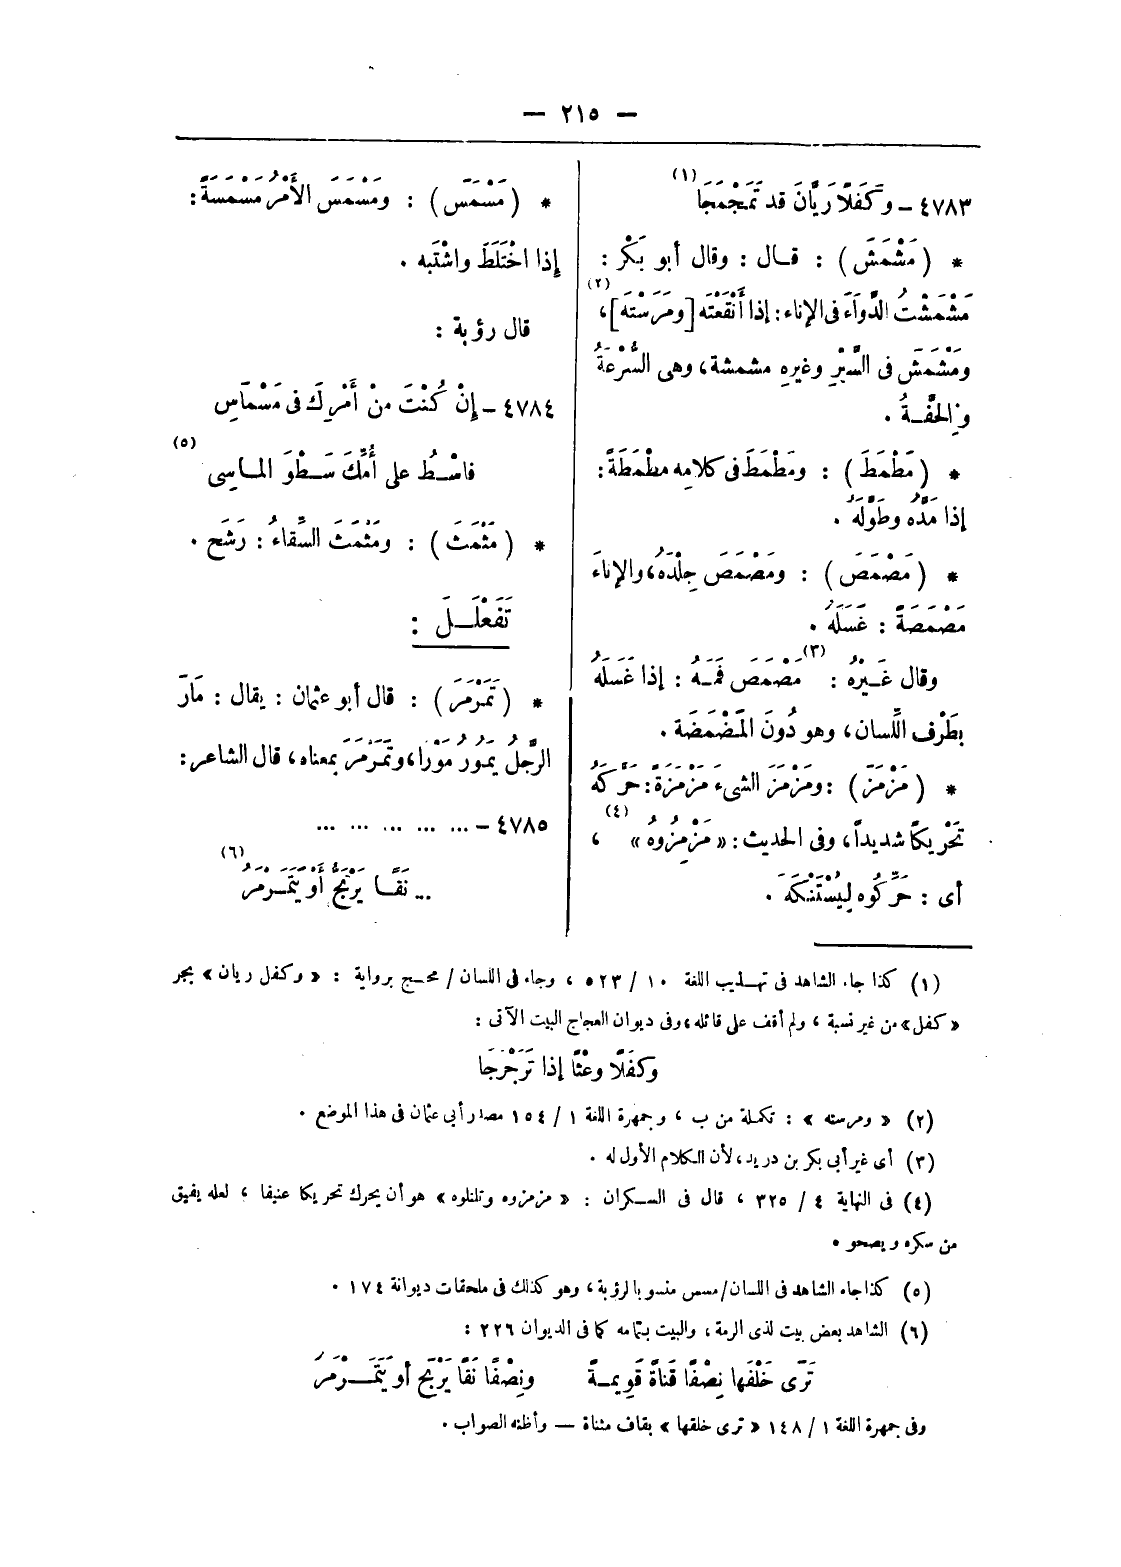 — ٢١٥ —
٤٧٨٣ – وَكَفَلًا رَيَّانَ قد تَمَجْمَجَا (١)
* ( مَشْمَشَ ) : قــال : وقال أبو بَكْر :
مَشْمَشْتُ الدَّوَاءَ فى الإناء : إذا أَنْقَعْتَه [ومَرَسْتَه] (٢) ،
ومَشْمَشَ فى السَّيْرِ وغيرِه مشمشة ، وهى السُّرْعَةُ
والخِفَّــةُ .
* ( مَطْمَطَ ) : ومَطْمَطَ فى كلامِه مطْمَطَةً :
إذا مَدَّه وطَوَّلَهُ .
* ( مَصْمَصَ ) : ومَصْمَصَ جِلْدَه ، والإناءَ
مَصْمَصَةً : غَسَلَهُ .
وقال غَــيْرُه (٣) : مَصْمَصَ فَمَــهُ : إذا غَسَلَهُ
بطَرْفِ اللِّسان ، وهو دُونَ المَضْمَضَة .
* ( مَزْمَزَ ) : ومَزْمَزَ الشىءَ مَزْمَزَةً : حَرَّكَهُ
تَحْرِيكًا شديداً ، وفى الحديث : « مَزْمِزُوهُ » (٤) ،
أى : حَرِّكُوه لِيُسْتَنْكَهَ .
* ( مَسْمَسَ ) : ومَسْمَسَ الأَمْرُ مسْمسَةً :
إذا اخْتَلَطَ واشْتَبه .
قال رؤبة :
٤٧٨٤ – إِنْ كُنْتَ منْ أَمْرِكَ فى مَسْمَاسِ
فاسْــطُ على أُمِّكَ سَــطْوَ المـاسِى (٥)
* ( مَثْمَثَ ) : ومَثْمَثَ السِّقاءُ : رَشَح .
تَفَعْلَــلَ :
* ( تَمَرْمَرَ ) : قال أبو عثمان : يقال : مَارَ
الرَّجُلُ يَمُورُ مَوْرًا ، وتَمَرْمَرَ بمعناه ، قال الشاعر :
٤٧٨٥ – ... ... ... ... ...
... نَقًــا يَرْتَجُّ أَوْ يَتَمَــرْمَرُ (٦)
(١) كذا جاء الشاهد فى تهــذيب اللغة ١٠ / ٥٢٣ ، وجاء فى اللسان / محــج برواية : « وكفل ريان » بجر
« كفل » من غير نسبة ، ولم أقف على قائله ، وفى ديوان العجاج البيت الآتى :
وكفَلًا وعْثًا إذا تَرَجْرَجَا
(٢) « ومرسته » : تكملة من ب ، وجمهرة اللغة ١ / ١٥٤ مصدر أبى عثمان فى هذا الموضع .
(٣) أى غير أبى بكر بن دريد ، لأن الكلام الأول له .
(٤) فى النهاية ٤ / ٣٢٥ ، قال فى السـكران : « مزمزوه وتلتلوه » هو أن يحرك تحريكا عنيفا ، لعله يفيق
من سكره ويصحو .
(٥) كذا جاء الشاهد فى اللسان/ مسس منسوبا لرؤبة ، وهو كذلك فى ملحقات ديوانة ١٧٤ .
(٦) الشاهد بعض بيت لذى الرمة ، والبيت بتمامه كما فى الديوان ٢٢٦ :
تَرَى خَلْفَها نِصْفًا قَناةً قَوِيمــةً ونِصْفًا نَقًا يَرْتَجُّ أو يَتَمَــرْمَرُ
وفى جمهرة اللغة ١ / ١٤٨ « ترى خلقها » بقاف مثناة — وأظنه الصواب .